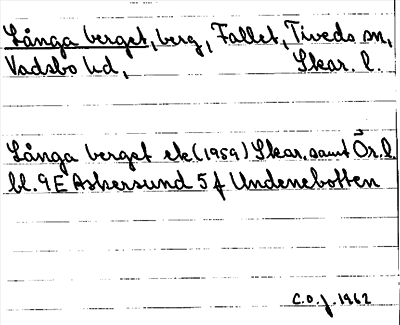 Långa berget, berg, Fallet, Tiveds sn,
Vadsbo hd, Skar. l.
Långa berget ek (1959) Skar. samt Ör. l.
bl. 9E Askersund 5f Undenebotten
C.O.J. 1962